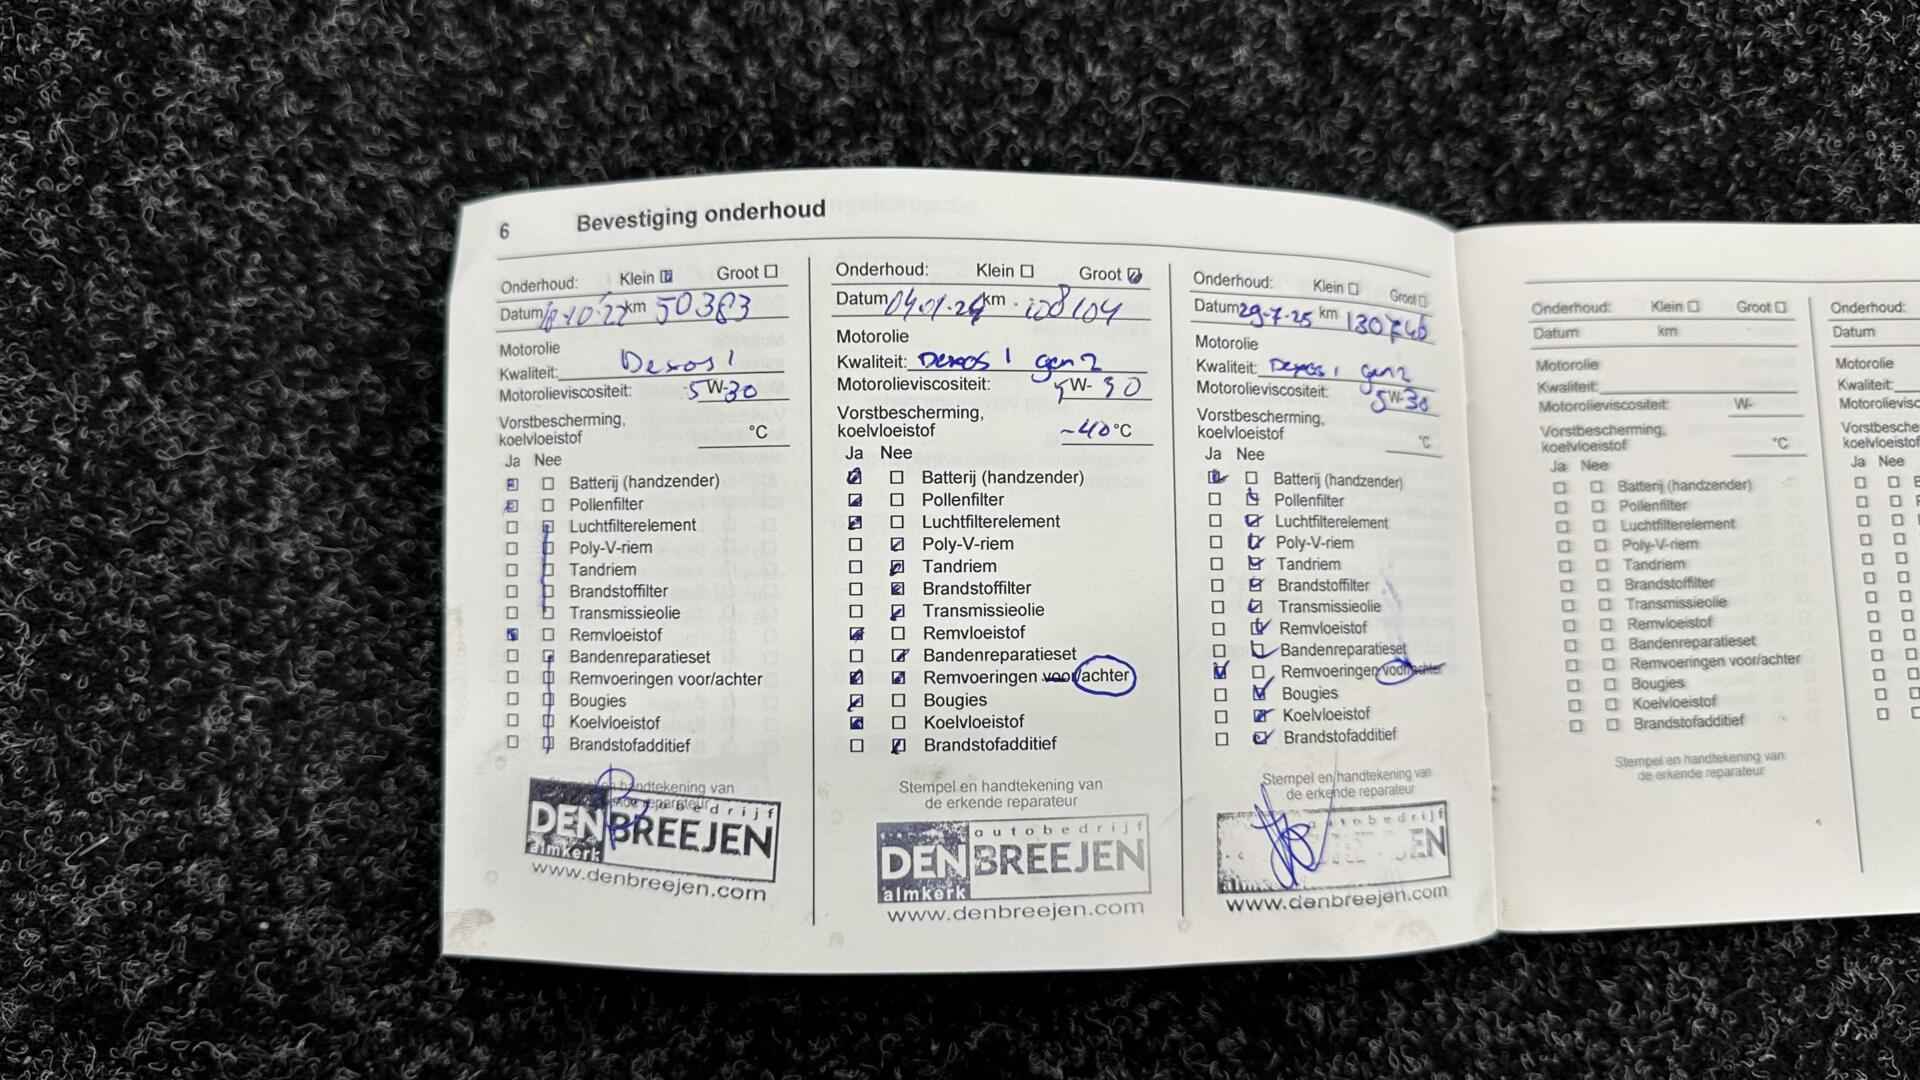 6 Bevestiging onderhoud
Onderhoud: Klein Groot
Datum 18-10-22 km 50383
Motorolie
Kwaliteit: Dexos 1
Motorolieviscositeit: 5W-30
Vorstbescherming,
koelvloeistof °C
Ja Nee
Batterij (handzender)
Pollenfilter
Luchtfilterelement
Poly-V-riem
Tandriem
Brandstoffilter
Transmissieolie
Remvloeistof
Bandenreparatieset
Remvoeringen voor/achter
Bougies
Koelvloeistof
Brandstofadditief
Stempel en handtekening van
reparateur
autobedrijf
DEN BREEJEN
almkerk
www.denbreejen.com
Onderhoud: Klein Groot
Datum 04-01-24 km 108104
Motorolie
Kwaliteit: Dexos 1 gen 2
Motorolieviscositeit: 5W-30
Vorstbescherming,
koelvloeistof ~40°C
Ja Nee
Batterij (handzender)
Pollenfilter
Luchtfilterelement
Poly-V-riem
Tandriem
Brandstoffilter
Transmissieolie
Remvloeistof
Bandenreparatieset
Remvoeringen voor/achter
Bougies
Koelvloeistof
Brandstofadditief
Stempel en handtekening van
de erkende reparateur
autobedrijf
DEN BREEJEN
almkerk
www.denbreejen.com
Onderhoud: Klein Groot
Datum 29-7-25 km 130746
Motorolie
Kwaliteit: Dexos 1 gen2
Motorolieviscositeit: 5W-30
Vorstbescherming,
koelvloeistof °C
Ja Nee
Batterij (handzender)
Pollenfilter
Luchtfilterelement
Poly-V-riem
Tandriem
Brandstoffilter
Transmissieolie
Remvloeistof
Bandenreparatieset
Remvoeringen voor/achter
Bougies
Koelvloeistof
Brandstofadditief
Stempel en handtekening van
de erkende reparateur
autobedrijf
www.denbreejen.com
Onderhoud: Klein Groot
Datum km
Motorolie
Kwaliteit:
Motorolieviscositeit: W-
Vorstbescherming,
koelvloeistof °C
Ja Nee
Batterij (handzender)
Pollenfilter
Luchtfilterelement
Poly-V-riem
Tandriem
Brandstoffilter
Transmissieolie
Remvloeistof
Bandenreparatieset
Remvoeringen voor/achter
Bougies
Koelvloeistof
Brandstofadditief
Stempel en handtekening van
de erkende reparateur
Onderhoud:
Datum
Motorolie
Kwaliteit:
Motorolievisc
Vorstbesche
koelvloeistof
Ja Nee